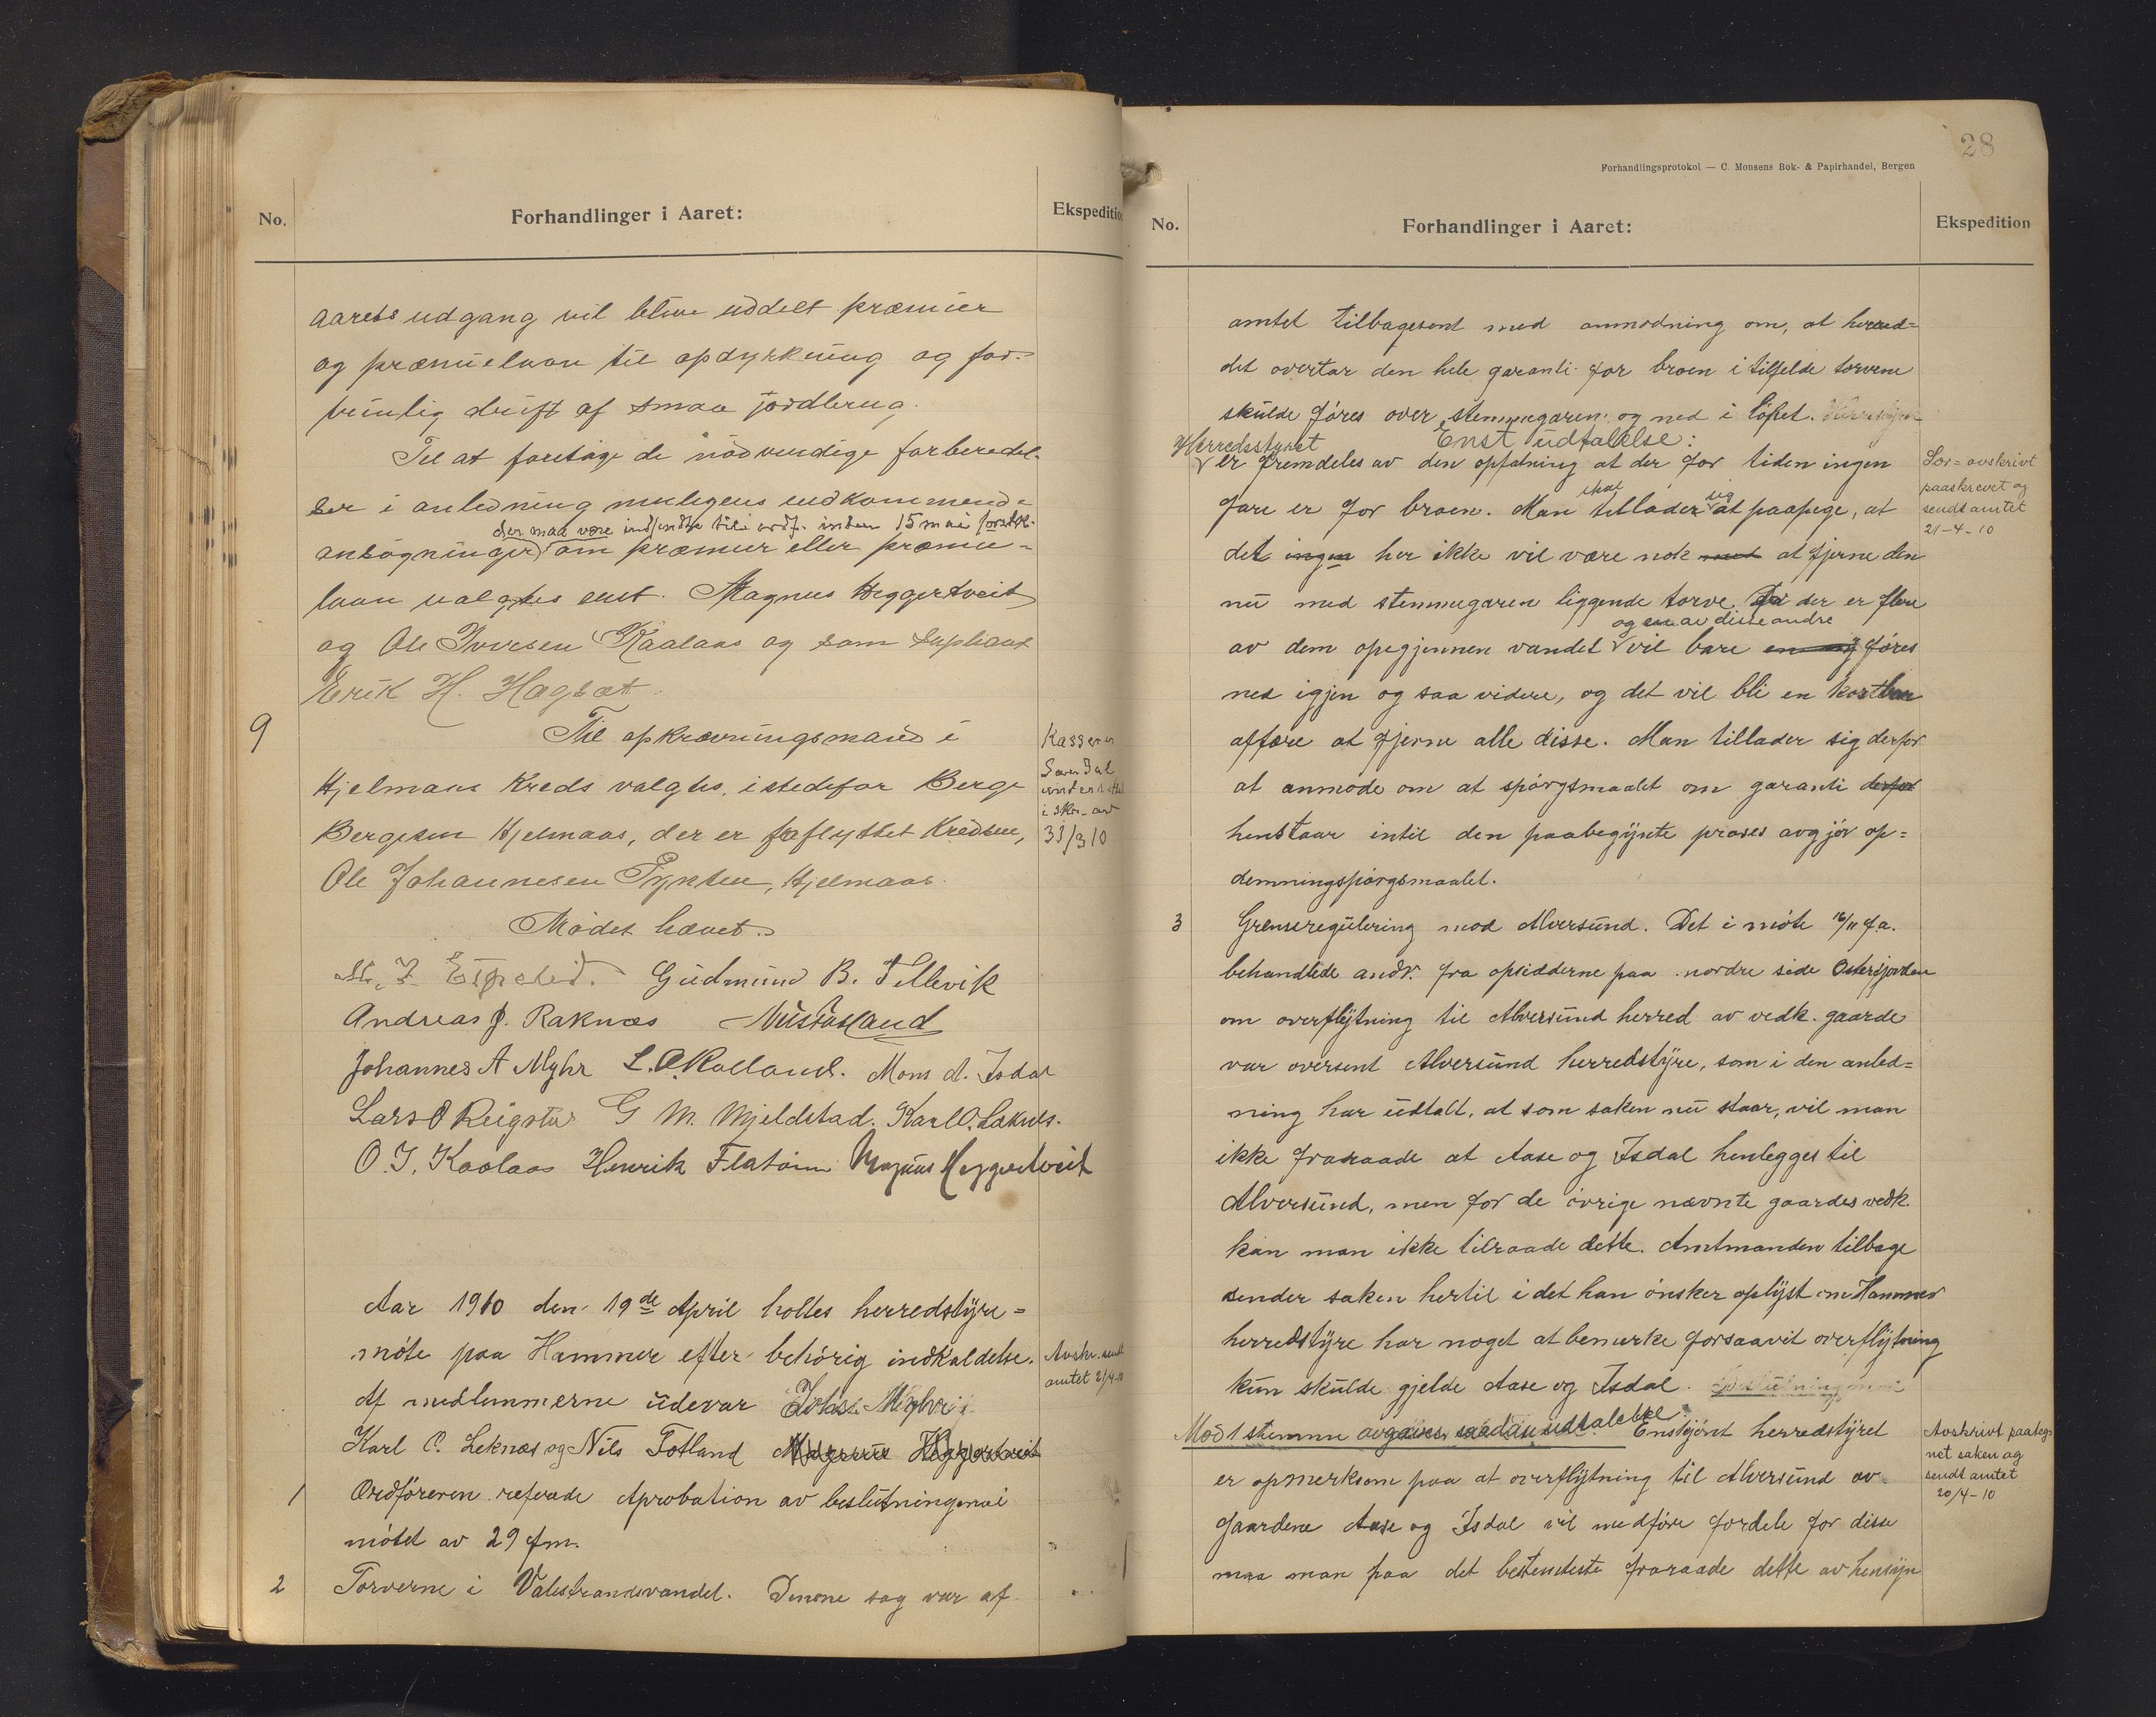 No.
Forhandlinger i Aaret:
Ekspedition
aarets udgang vil blive uddelt præmier
og præmielaan til opdyrkning og for-
trinlig drift af smaa jordbrug.
Til at foretage de nödvendige forberedel-
ser i anledning muligens indkommende
der maa være indsendte til ordf. inden 15 mai førstk.
ansøgninger om præmier eller præmie-
laan valgtes enst. Magnus Heggertveit
og Ole Iversen Kaalaas og som supleant
Erik H. Hagsæt.
9
Til opkrævningsmand i
Hjelmaas Kreds valgtes, istedefor Berge
Bergesen Hjelmaas, der er fraflyttet Kredsen,
Ole Johannesen Tynten, Hjelmaas.
Kasserer
i skr. av
31/3 10
Mödet hævet.
Gudmund B. Tellevik
Andreas J. Raknæs
Johannes A Myhr L. O. Rolland. Mons A. Isdal
Lars O Reigstad G M. Mjeldstad. Karl O. Leknes.
O. I. Kaalaas Henrik Flatöin Magnus Heggertveit
Aar 1910 den 19de April holtes herredstyre=
möte paa Hammer efter behörig indkaldelse.
Avskr. sendt
amtet 21/4-10
Af medlemmerne udevar Johs. Myhr i
Karl O. Leknæs og Nils Totland Magnus Heggertveit
1
Ordföreren referede Aprobation av beslutninger i
mötet av 29 f.m.
2
Torverne i Valestrandsvandet. Denne sag var af
28
Forhandlingsprotokol — C. Monsens Bok- & Papirhandel, Bergen
No.
Forhandlinger i Aaret:
Ekspedition
amtet tilbagesent med anmodning om, at herred=
det overtar den hele garanti for broen i tilfelde torvene
skulde föres over stemmegaren og ned i löpet.
Herredsstyret Enst udtalelse:
er fremdeles av den opfatning at der for tiden ingen
fare er for broen. Man skal tillade sig at paapege, at
Sær=avskrivt
paaskrevet og
sendt amtet
21-4-10
det ingen her ikke vil være nok med at fjerne den
nu med stemmegaren liggende torve. Da der er flere
og en av disse andre
av dem opigjennen vandet vil bare en ny föres
ned igjen og saa videre, og det vil bli en kostbar
affære at fjerne alle disse. Man tillader sig derfor
at anmode om at spörgsmaalet om garanti derfor
henstaar intil den paabegynte proses avgjör op=
demningspörgsmaalet.
3
Grenseregulering mod Alversund. Det i möte 16/11 f.a.
behandlede andr. fra opsidderne paa nordre side Osterfjorden
om overflytning til Alversund herred av vedk. gaarde
var oversent Alversund herredstyre, som i den anled=
ning har udtalt, at som saken nu staar, vil man
ikke fraraade at Aase og Isdal henlegges til
Alversund, men for de övrige nævnte gaardes vedk.
kan man ikke tilraade dette. Amtmanden tilbage
sender saken hertil i det han önsker oplyst om Hammer
herredstyre har noget at bemerke forsaavit overflytning
kun skulde gjelde Aase og Isdal.
Mod 1 stemme avgaves saadan udtalelse: Enskjönt herredstyret
er opmerksom paa at overflytning til Alversund av
Avskrivt paateg
net saken og
sendt amtet
20/4-10
gaardene Aase og Isdal vil medföre fordele for disse
maa man paa det bestemteste fraraade dette av hensyn